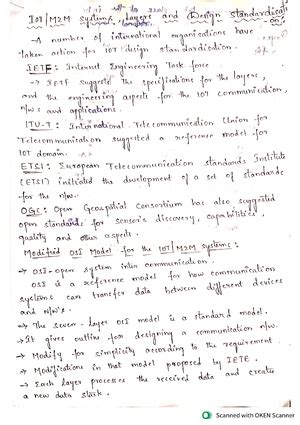 IOT/M2M systems, layers and Design standardization:
→ A number of international organisations have
taken action for IOT design standardisation.
IETF: Internet Engineering Task force
→ IETF suggested the specifications for the layers,
and the engineering aspects for the IOT communication,
n/ws and applications.
ITU-T: International Telecommunication Union for
Telecommunication suggested a reference model for
IOT domain.
ETSI: European Telecommunication standards Institute
(ETSI) initiated the development of a set of standards
for the n/w.
OGC: Open Geospatial Consortium has also suggested
open standards for sensor's discovery, capabilities,
quality and other aspects.
Modified OSI Model for the IOT/M2M systems:
→ OSI-open system inter communication.
OSI is a reference model for how communication
systems can transfer data between different devices
and N/W's.
→ The seven-layer OSI model is a standard model.
→ It gives outline for designing a communication n/w.
→ Modify for simplicity according to the requirement.
→ Modifications in that model proposed by IETE.
→ Each layer processes the received data and creates
a new data stack.
Scanned with OKEN Scanner